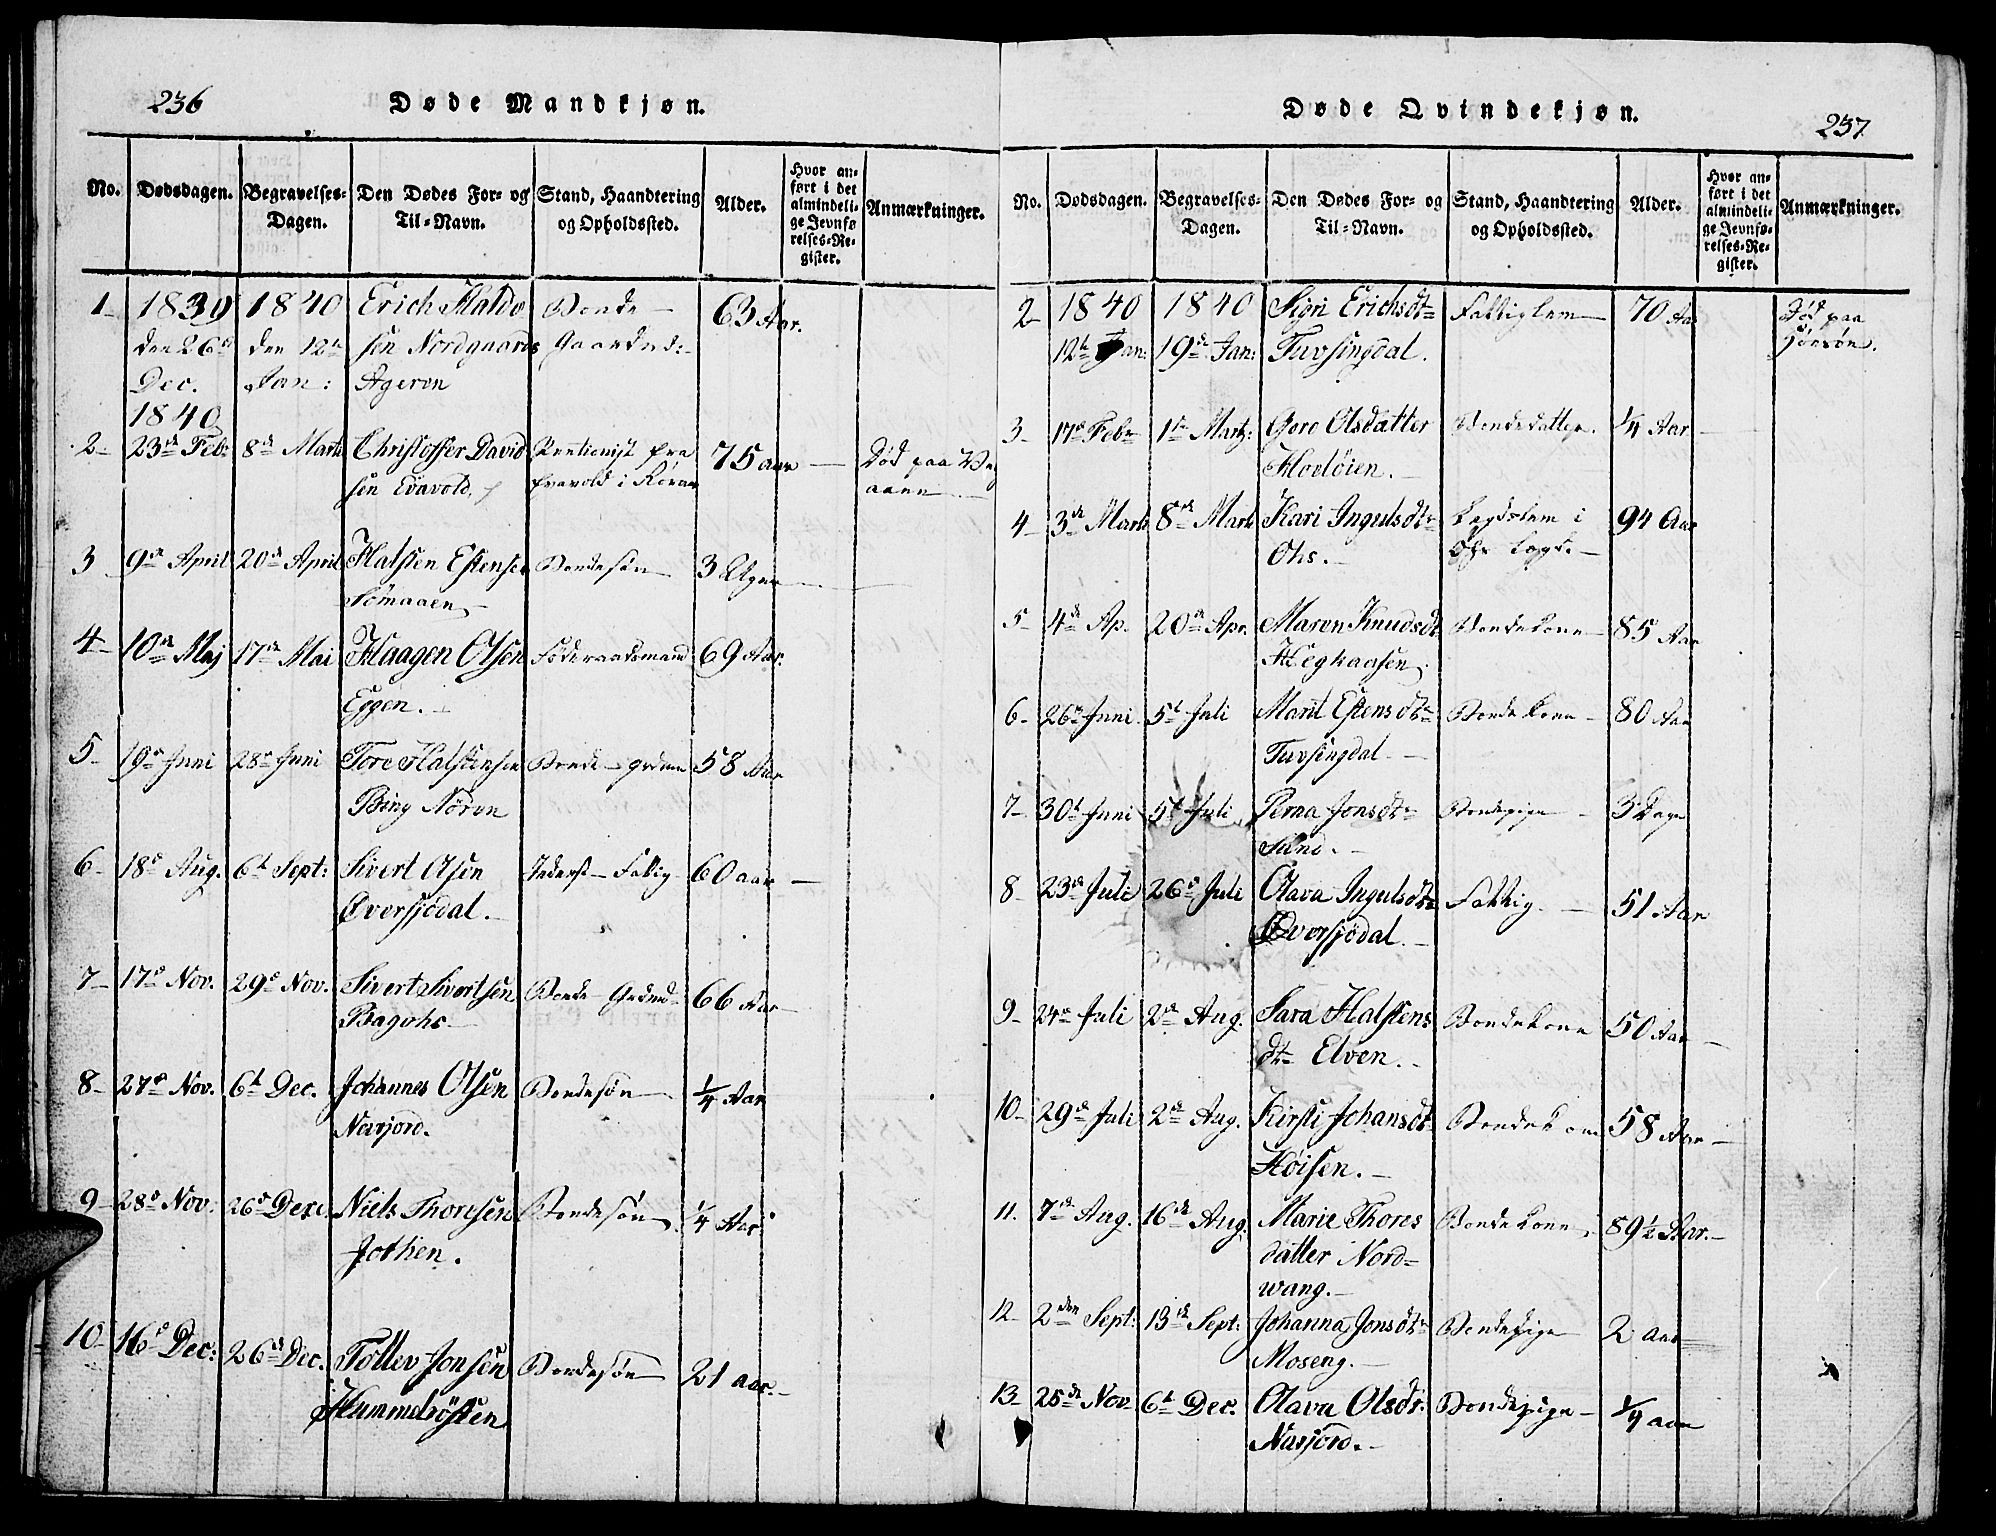 236
Døde Mandkjøn.
No. Dødsdagen. Begravelses-Dagen. Den Dødes For- og Til-Navn. Stand, Haandtering og Opholdssted. Alder. Hvor anført i det almindelige Jevnførelses-Register. Anmærkninger.
1 1839 1840 Erich Haldo Bonde 63 Aar.
den 26d den 12te sen Nordgaards Gaardmd:
Dec. Jan: Ageren
1840
2 23de Feb: 8de Marts Christoffer David Pentionist fra 75 aar Død paa
sen Evavold. Evavold i Røraas
3 9de April 20de April Halsten Estensen Bondesøn 3 Uger
Sømaaen
4 10de Maj 17de Mai Haagen Olsen Føderaadsmand 69 Aar.
Eggen.
5 19de Juni 28de Juni Tore Halstensen Bonde 58 Aar
Bing Nøren
6 18de Aug. 6te Sept: Sivert Olsen Inderst Fattig 60 aar
Øversjødal.
7 17de Nov. 29de Nov. Sivert Sivertsen Bonde Grdmd 66 Aar
Bagohs
8 27de Nov. 6te Dec. Johannes Olsen Bondesøn 1/4 Aar
Narjord.
9 28de Nov: 26de Dec. Niels Thoresen Bondesøn 1/4 Aar
Jothen.
10 16de Dec: 26de Dec. Tollev Jonsen Bondesøn 21 aar.
Hummelvøllen
Døde Qvindekjøn.
237
No. Dødsdagen. Begravelses-Dagen. Den Dødes For- og Til-Navn. Stand, Haandtering og Opholdssted. Alder. Hvor anført i det almindelige Jevnførelses-Register. Anmærkninger.
2 1840 1840 Sigri Erichsdtr Fattiglem 70 Aar Død paa
12te Jan: 19de Jan: Tuvsingdal.
3 17de Febr 1te Marts: Goro Olsdatter Bondedatter 1/4 Aar
Hodløien.
4 3de Marts 8de Marts Kari Ingulsdtr Legdslem i 94 Aar
Ohs. Ohs Legd.
5 4de Ap. 20de Apr. Maren Knudsdt Bondekone 85 Aar
Heghaasen
6 26de Juni 5te Juli Marit Estensdtr Bondekone 80 Aar
Tuvsingdal
7 30te Juni 5te Juli Perna Jonsdtr Bondepige 3 Dage
Sund.
8 23de Juli 26de Juli Olava Ingulsdtr Fattig. 51 Aar
Øversjødal.
9 24de Juli 2de Aug. Sara Halstens Bondekone 50 Aar
dtr Elven.
10 29de Juli 2de Aug. Kirsti Johansdt Bondekone 58 Aar
Høisen.
11. 7de Aug. 16de Aug. Marie Thores Bondekone 89 1/2 Aar.
datter Nord=
wang.
12 2den Sept: 13de Sept: Johanna Jonsdtr Bondepige 2 aar
Moseng.
13 25de Nov. 6te Dec. Olava Olsdtr. Bondepige 1/4 aar
Narjord.